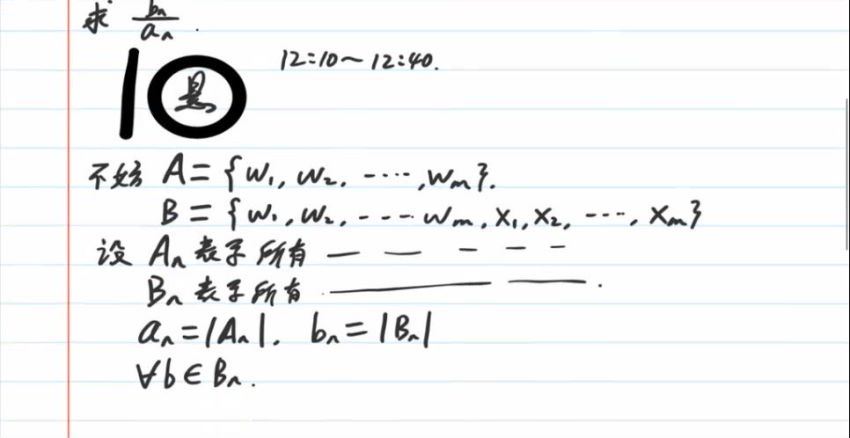 求 bₙ/aₙ.
10 12:10~12:40.
不妨 A={w₁, w₂, ····, wₘ}.
B={w₁, w₂, ---- wₘ, x₁, x₂, ···, xₘ}
设 Aₙ 表示所有 — — — — —
Bₙ 表示所有 —— ——.
aₙ=|Aₙ|. bₙ=|Bₙ|
∀b∈Bₙ.